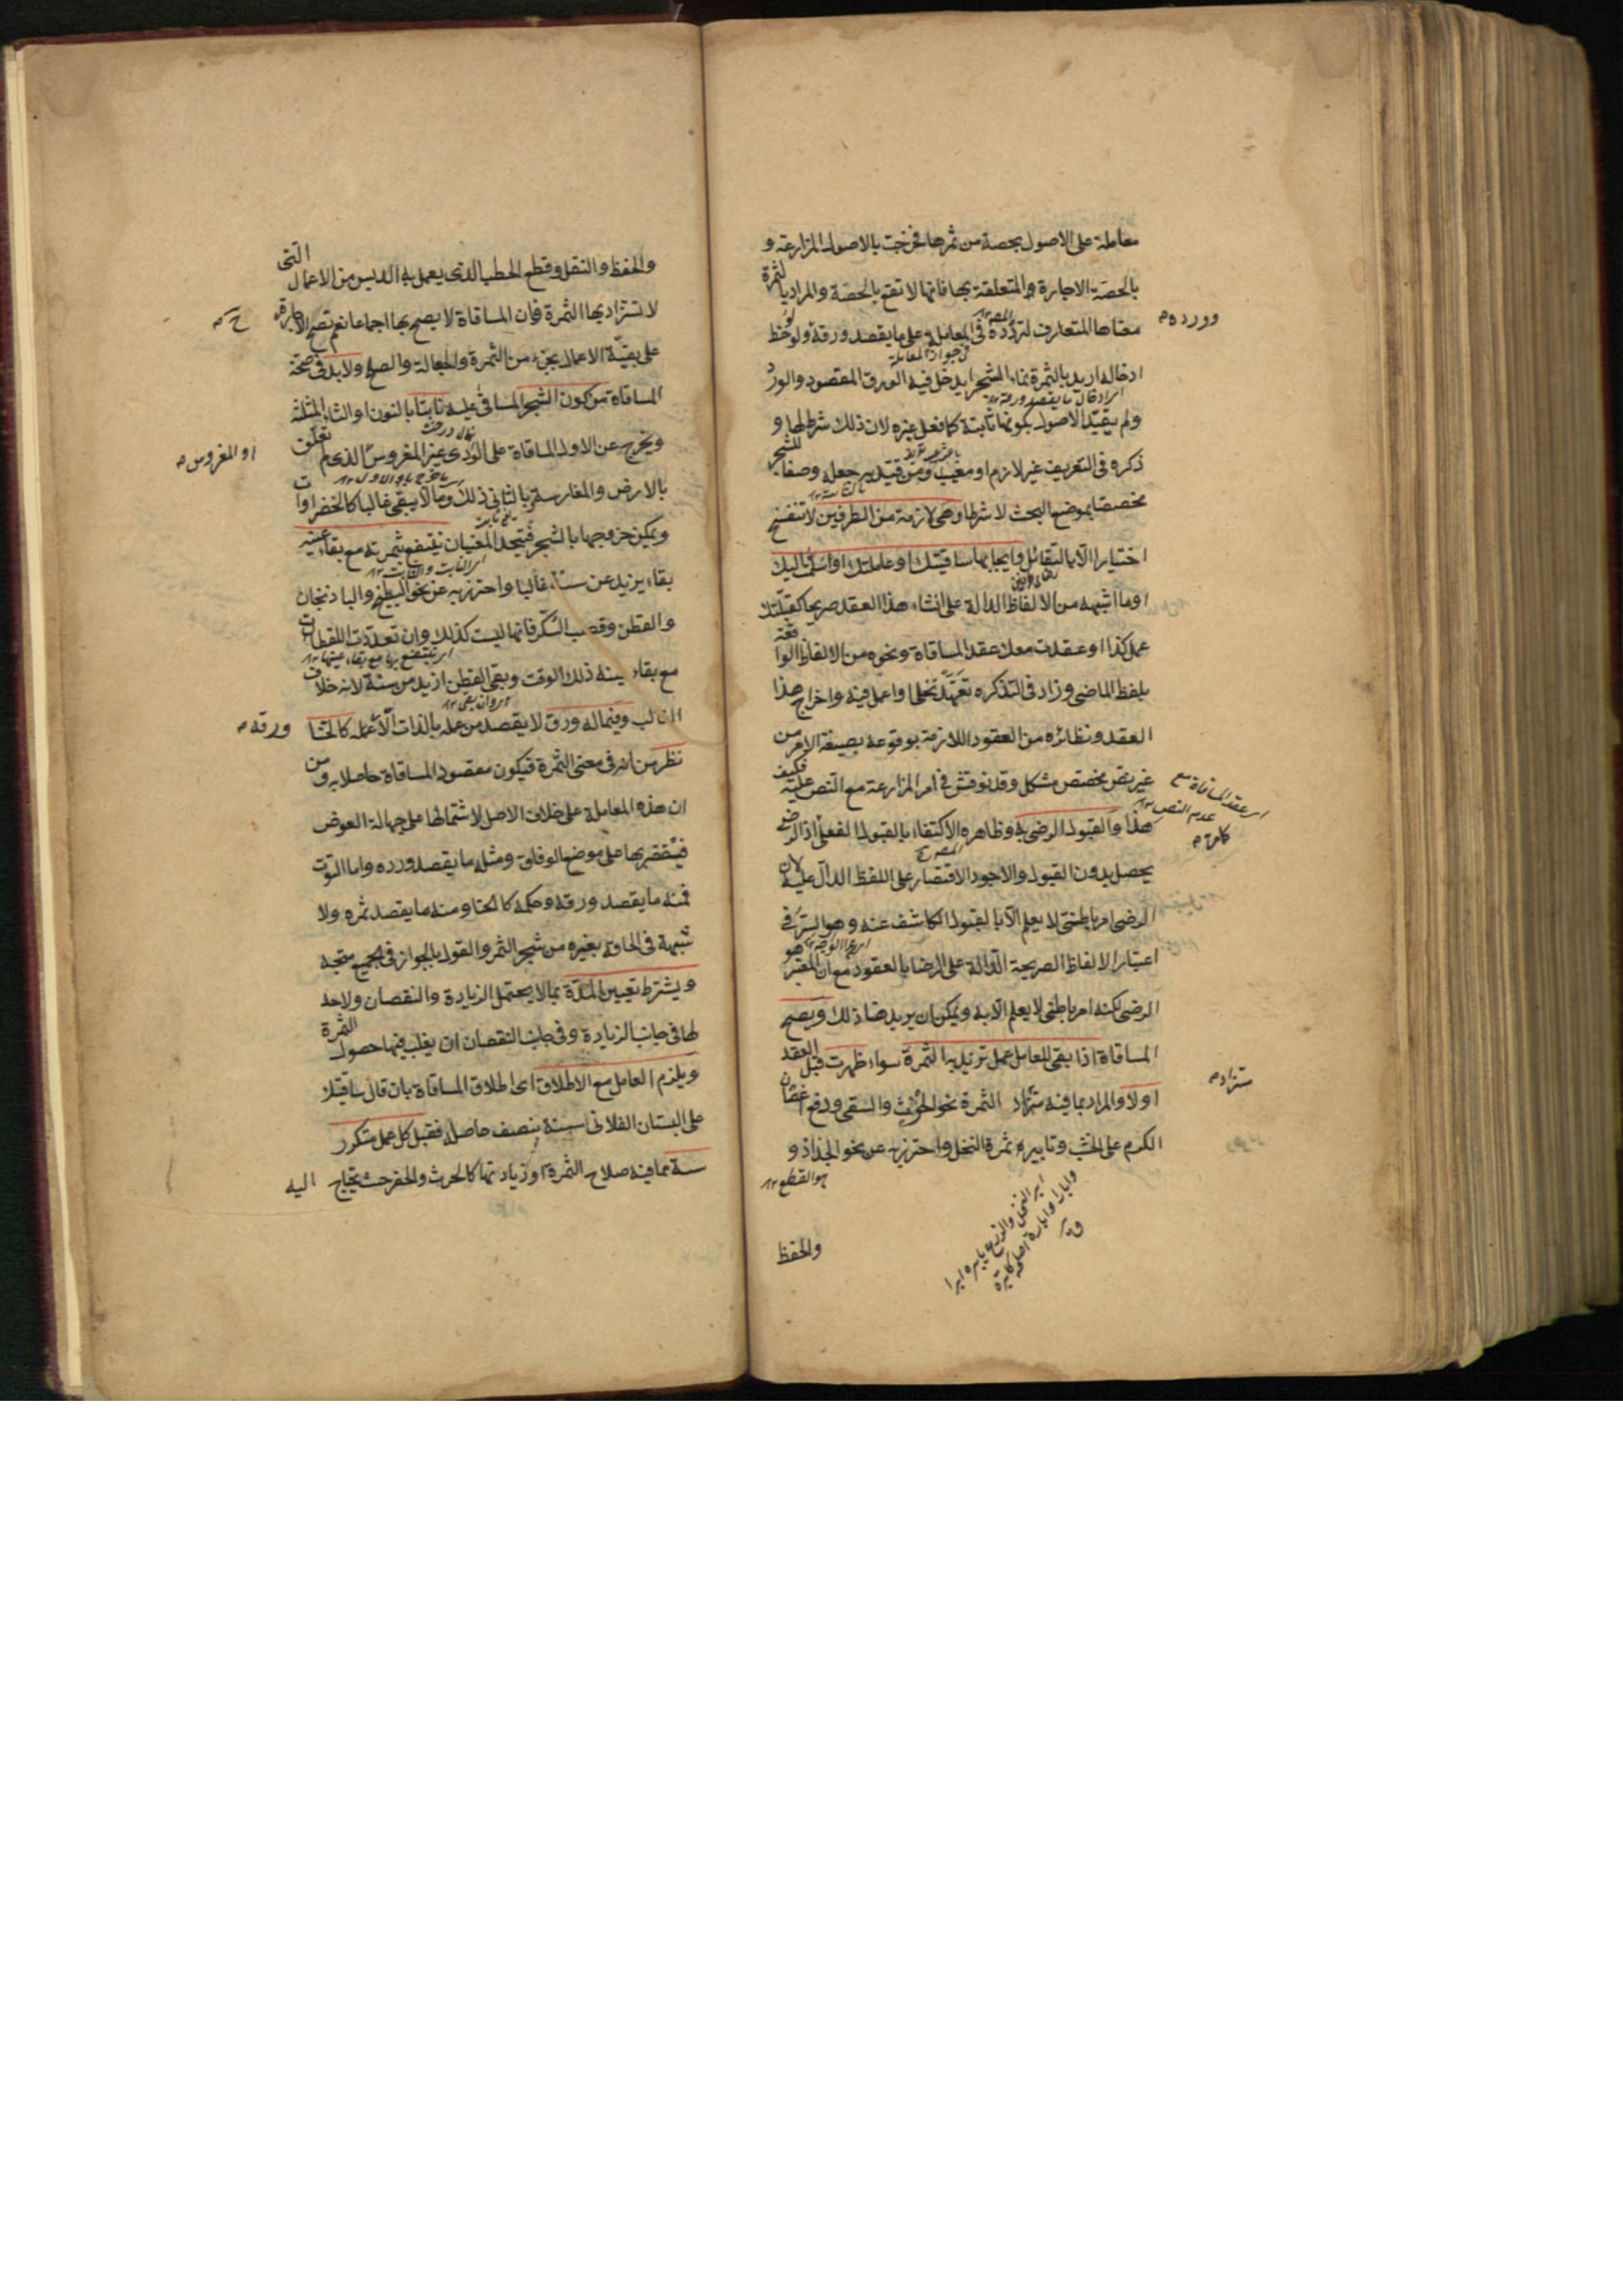 معاملة على الاصول بحصة من ثمرها فخرجت بالاصول المزارعة و
بالحصة الاجارة والمتعلقة بها فانها لا تقع بالحصة والمراد بالثمرة
معناها المتعارف لتردده في المعاملة على ما يقصد ورقه ولو لوحظ
ووروده
ادخاله اريد بالثمرة نماء الشجر ليدخل فيه الورق المقصود والورد
ولم يقيد الاصول بكونها ثابتة كما فعل غيره لان ذلك شرط لها و
ذكره في التعريف غير لازم او معيب ومن قيد به جعله وصفا للشجر
مخصصا لموضع البحث لا شرطا وهي لازمة من الطرفين لا تنفسخ
اختيارا الا بالتقايل وايجابها ساقيتك او عاملتك او اسلمتها اليك
او ما اشبهه من الالفاظ الدالة على انشاء هذا العقد صريحا كقبلتك
عمل كذا او عقدت معك عقد المساقاة ونحوه من الالفاظ الواقعة
بلفظ الماضي وزاد في التذكره تعهد نخلى او اعمل فيه واخراج هذا
العقد ونظائره من العقود اللازمة بوقوعه بصيغة الامر من
غير نص مخصص مشكل وقد نوقش في امر المزارعة مع النص عليه فكيف
اى عقد المساقاة مع
عدم النص
هذا والقبول الرضى به وظاهره الاكتفاء بالقبول الفعلى اذ الرضى
يحصل بدون القبول والاجود الاقتصار على اللفظ الدال عليه لان
الرضى امر باطنى لا يعلم الا بالقبول الكاشف عنه وهو السر في
اعتبار الالفاظ الصريحة الدالة على الرضا بالعقود مع ان المعتبر هو
الرضى لكنه امر باطنى لا يعلم الا به ويمكن ان يريد هنا ذلك ويصح
المساقاة اذا بقى للعامل عمل تزيد به الثمرة سواء ظهرت قبل العقد
او لا والمراد بما فيه مستزاد الثمرة نحو الحرث والسقى ورفع اغصان
الكرم على الخشب وتابير ثمرة النخل واحترز به عن نحو الجذاذ و
هو القطع
ابر النخل والزرع يابره ابرا
وابارا وابارة اصلحه كابره
ق
والحفظ
والحفظ والنقل وقطع الحطب الذى يعمل به الدبس من الاعمال التى
لا تستزاد بها الثمرة فان المساقاة لا يصح بها اجماعا نعم تصح الاجارة
على بقية الاعمال بجزء من الثمرة والجعالة والصلح ولا بد في صحة
المساقاة من كون الشجر المساقى عليه نابتا بالنون او الثاء المثلثة
ويخرج عن الاول المساقاة على الودى غير المغروس الذى تعلق
او المغروس
بالارض والمغارسة وبالثانى ذلك وما لا يبقى غالبا كالخضراوات
ويمكن خروجها بالشجر فيتحد المعنيان ينتفع بثمرته مع بقاء عينه
بقاء يزيد عن سنة غالبا واحترز به عن نحو البطيخ والباذنجان
والقطن وقصب السكر فانها ليست كذلك وان تعددت اللقطات
مع بقاء عينه ذلك الوقت وبقى القطن ازيد من سنة لانه خلاف
الغالب وفيما له ورق لا يقصد من عمله بالذات الا عمله كالحنا
ورقه
نظر من انه في معنى الثمرة فيكون مقصود المساقاة حاصلا به ومن
ان هذه المعاملة على خلاف الاصل لاشتمالها على جهالة العوض
فيقتصر بها على موضع الوفاق ومثله ما يقصد ورده واما التوت
فمنه ما يقصد ورقه وحكمه كالحنا ومنه ما يقصد ثمره ولا
شبهة في الحاقه بغيره من شجر الثمر والقول بالجواز في الجميع متجه
ويشترط تعيين المدة بما لا يحتمل الزيادة والنقصان ولا حد
لها في جانب الزيادة وفي جانب النقصان ان يغلب فيها حصول الثمرة
ويلزم العامل مع الاطلاق اى اطلاق المساقاة بان قال ساقيتك
على البستان الفلانى سنة بنصف حاصله فقبل كل عمل متكرر
سنة مما فيه صلاح الثمرة او زيادتها كالحرث والحفر حيث يحتاج اليه